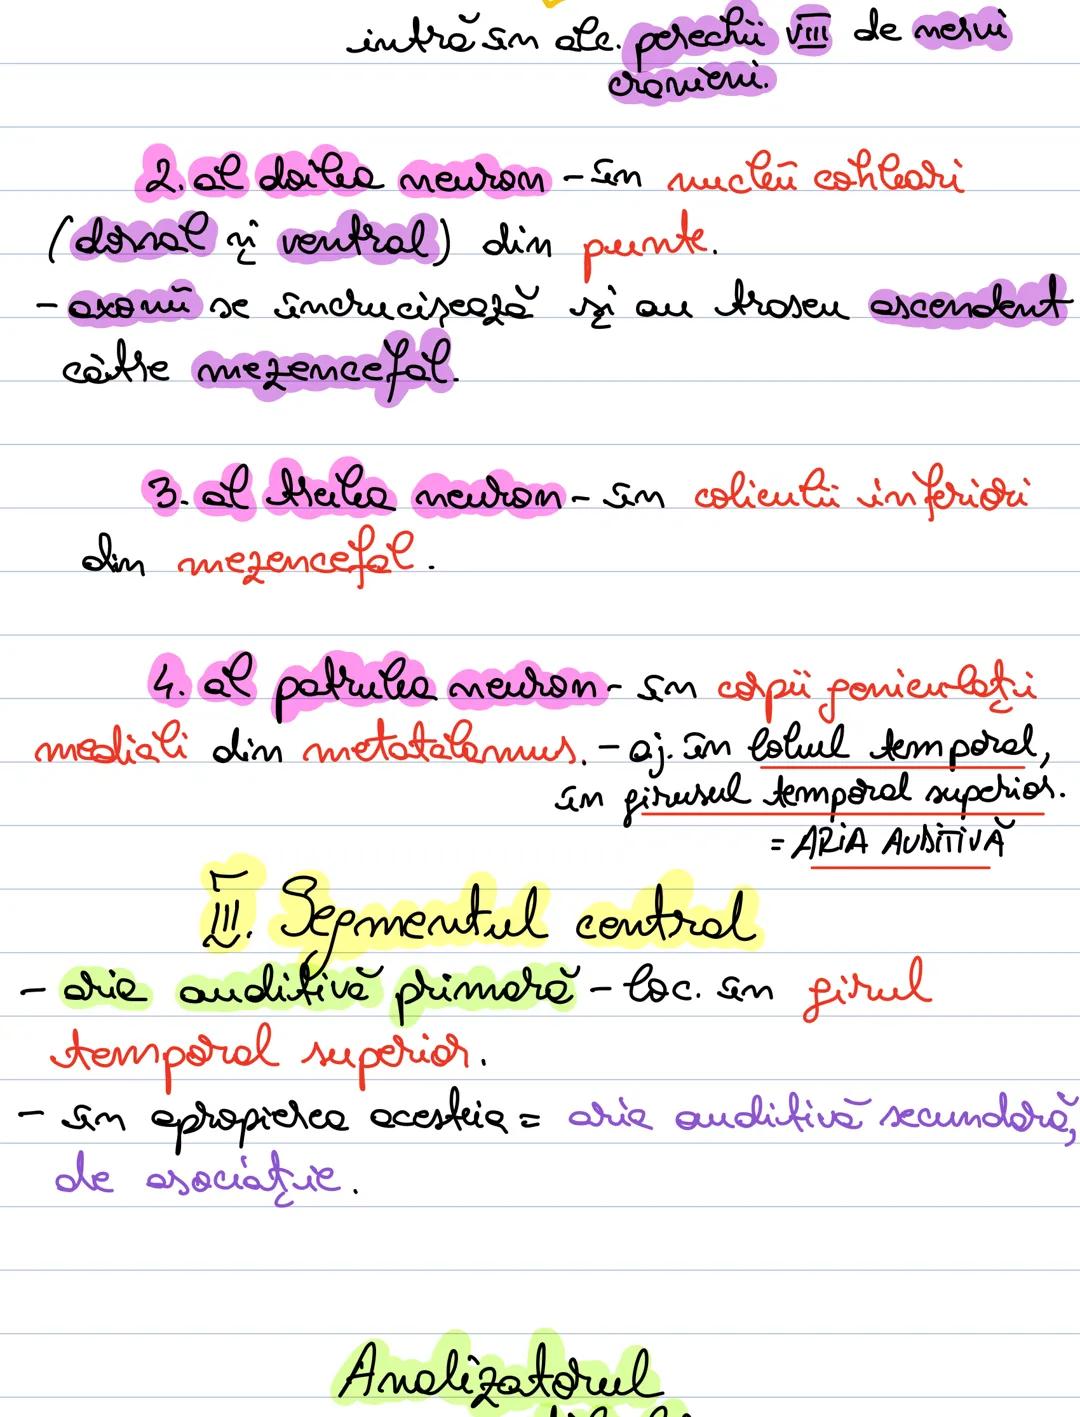 intră în alc. perechii VIII de nervi
cranieni.
2. al doilea neuron - în nucleii cohleari
(dorsal și ventral) din punte.
- axonii se încrucișează și au traseu ascendent
către mezencefal.
3. al treilea neuron - în coliculii inferiori
din mezencefal.
4. al patrulea neuron - în corpii geniculați
mediali din metatalamus. - aj. în lobul temporal,
în girusul temporal superior.
= ARIA AUDITIVĂ
III. Segmentul central
- aria auditivă primară - loc. în girul
temporal superior.
- în apropierea acesteia = aria auditivă secundară,
de asociație.
Analizatorul